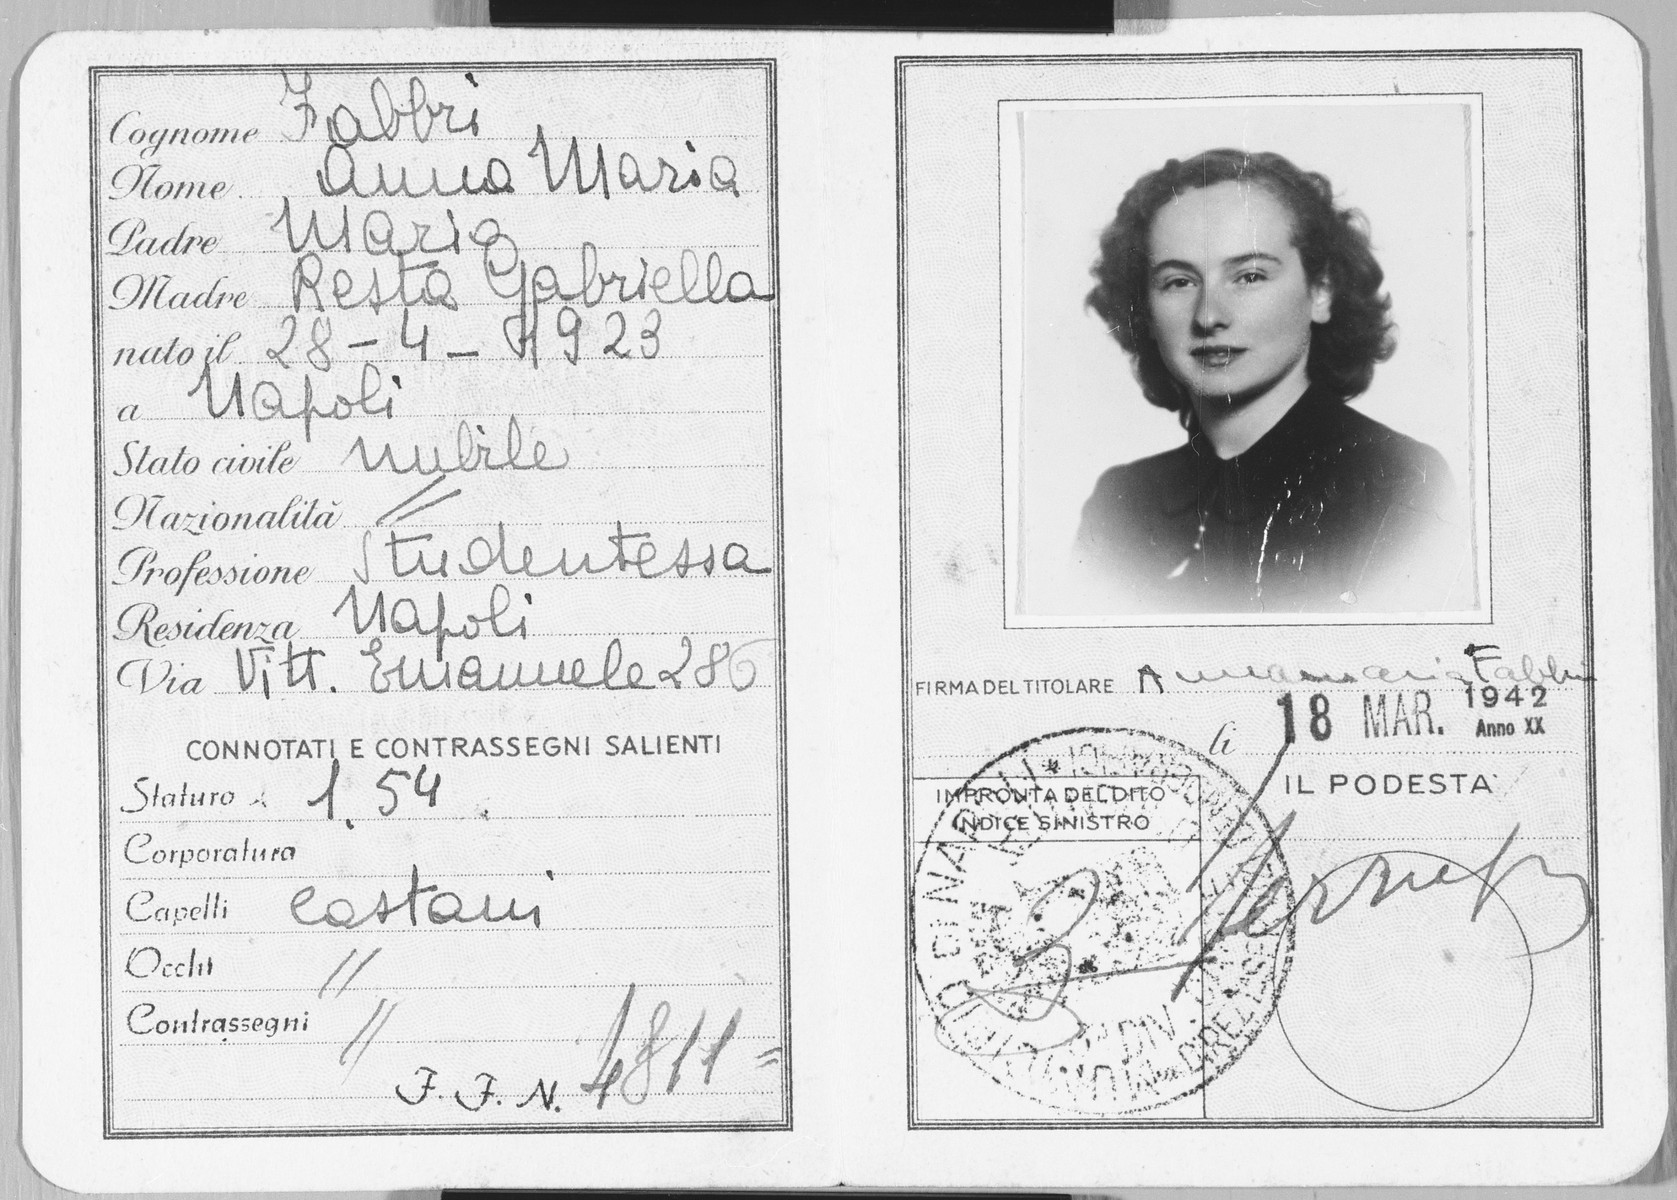 Cognome Fabbri
Nome Anna Maria
Padre Mario
Madre Resta Gabriella
nato il 28-4-1923
a Napoli
Stato civile nubile
Nazionalità //
Professione Studentessa
Residenza Napoli
Via Vitt. Emanuele 286
CONNOTATI E CONTRASSEGNI SALIENTI
Statura 1,54
Corporatura
Capelli castani
Occhi //
Contrassegni //
F. F. N. 4811=
FIRMA DEL TITOLARE Annamaria Fabbri
li 18 MAR. 1942
Anno XX
IL PODESTA'
IMPRONTA DEL DITO
INDICE SINISTRO
DI NAPOLI